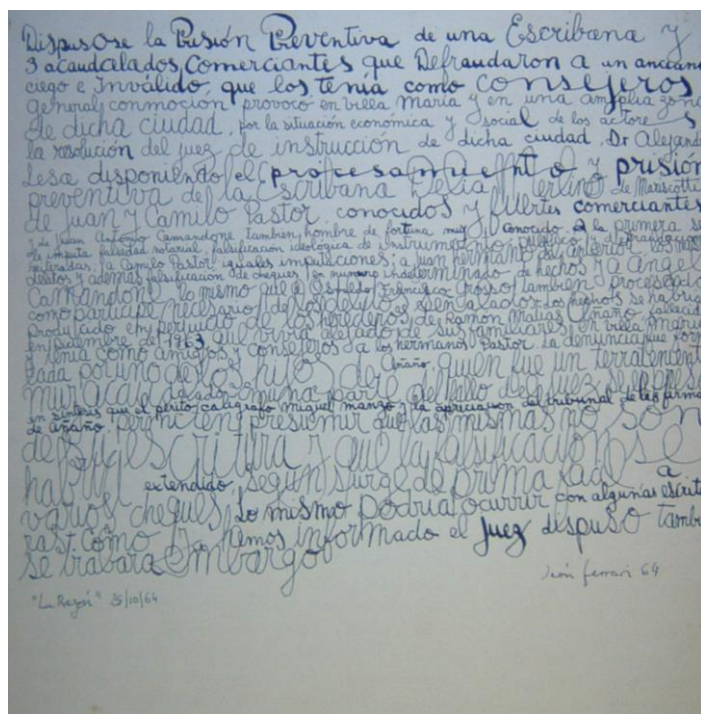 Dispusose la Prisión Preventiva de una Escribana y
3 acaudalados Comerciantes que Defraudaron a un anciano
ciego e Inválido, que los tenía como consejeros
general conmoción provocó en villa María y en una amplia zona
de dicha ciudad, por la situación económica y social de los actores
la resolución del juez de instrucción de dicha ciudad, Dr Alejand
Lesa disponiendo el procesamiento y prisión
preventiva de la Escribana Delia Merlino de Mariscotti
de Juan y Camilo Pastor conocidos y fuertes comerciantes
y de Juan Antonio Camandone tambien hombre de fortuna muy conocido. a la primera se
le imputa falsedad notarial, falsificación ideológica de instrumento público y defraudaciones
reiteradas; a Camilo Pastor iguales imputaciones; a Juan hermano del anterior los mismos
delitos y además falsificación de cheques en numero indeterminado de hechos y a angel
Camandone lo mismo que a Francisco Grosso tambien procesado
como participe necesario de los delitos señalados. Los hechos se habria
producido en perjuicio de los herederos de Ramon Matias Añaño, fallecido
en diciembre de 1963 que vivia alejado de sus familiares en villa Maria
y tenia como amigos y consejeros a los hermanos Pastor. La denuncia fue for
lada por uno de los hijos de Añaño, quien fue un terrateniente
muy acaudalado. en una parte del fallo del juez se expresa
en sintesis que el perito caligrafo miguel manzo y la apreciacion del tribunal de las firmas
de añaño. permiten presumir que las mismas no son
de puño y escritura y que la falsificacion se
habria extendido, segun surge de prima facie a
varios cheques, Lo mismo podria ocurrir con algunas escritu
ras. como ya hemos informado el juez dispuso tambi
se trabara embargo
León ferrari 64
"La Razón" 25/10/64